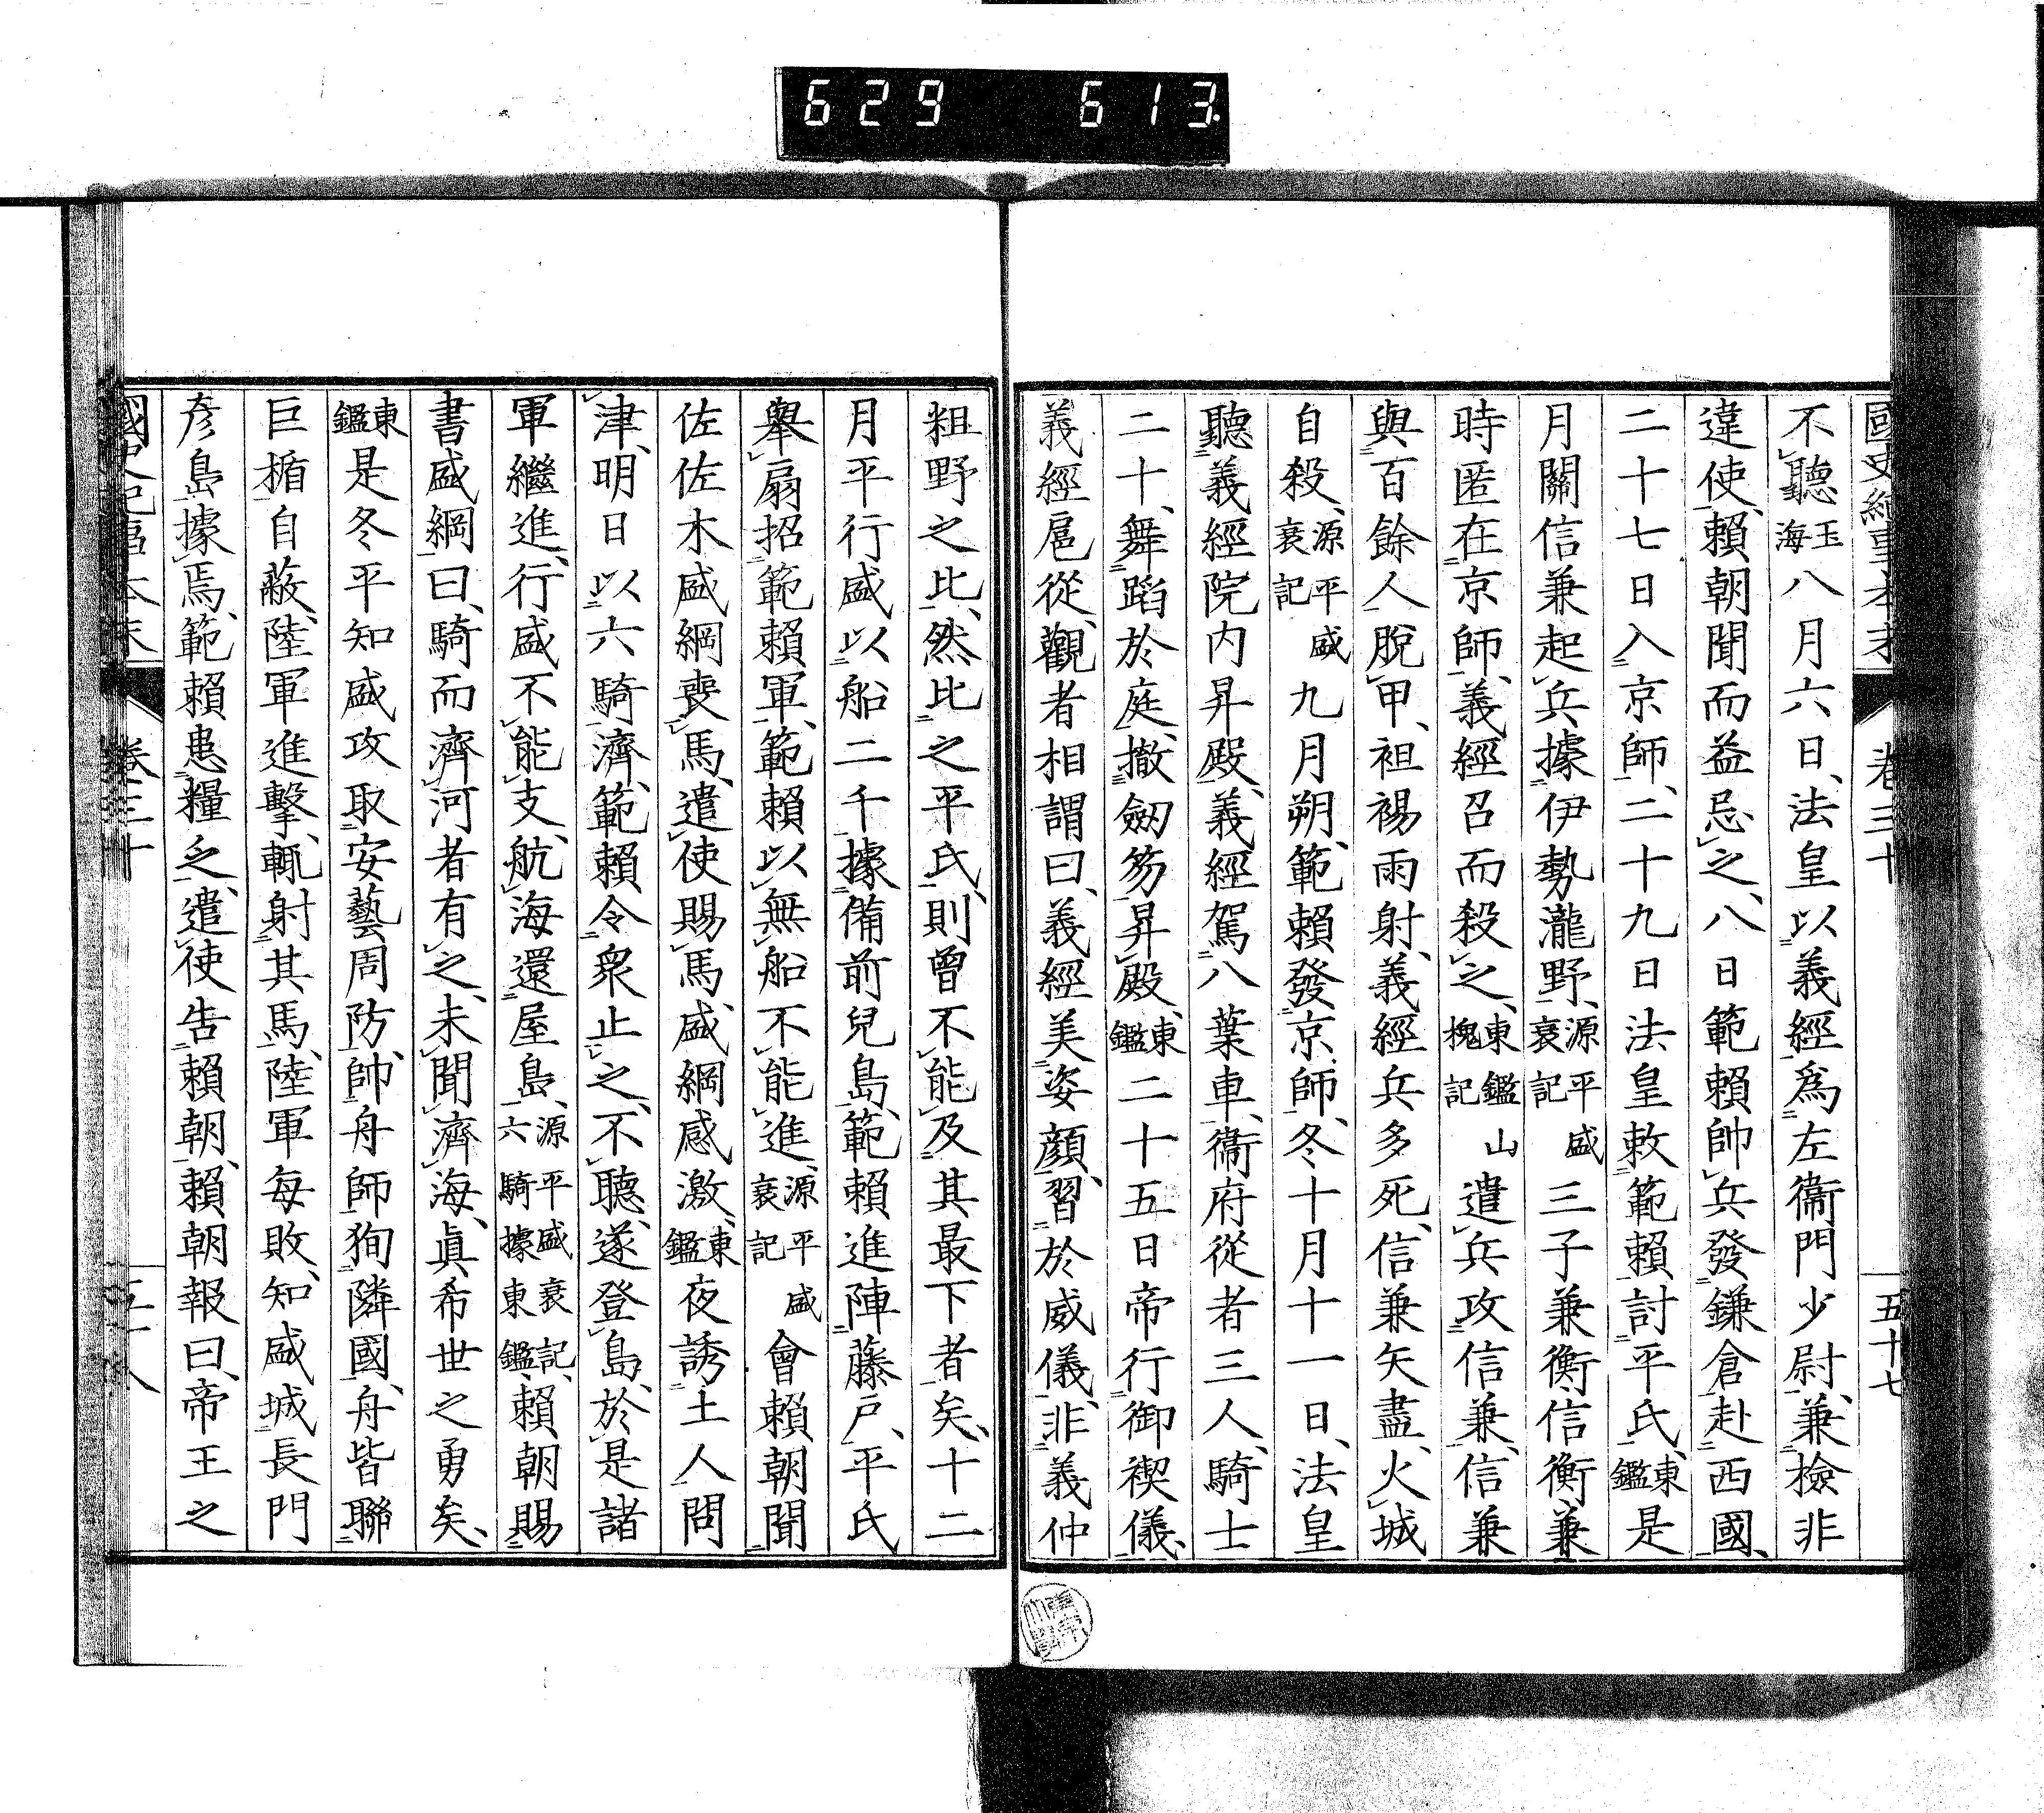 629 613
國史紀事本末 卷三十 五十七
不聽玉海八月六日、法皇以義經爲左衞門少尉、兼檢非
違使、賴朝聞而益忌之、八日範賴帥兵發鎌倉赴西國、
二十七日入京師、二十九日法皇敕範賴討平氏、東鑑是
月關信兼起兵據伊勢瀧野、源平盛衰記三子兼衡信衡兼
時匿在京師、義經召而殺之、東鑑山槐記遣兵攻信兼、信兼
與百餘人脫甲、袒裼雨射、義經兵多死、信兼矢盡、火城
自殺、源平盛衰記九月朔、範賴發京師、冬十月十一日、法皇
聽義經院内昇殿、義經駕八葉車、衞府從者三人、騎士
二十、舞蹈於庭、撤劔笏昇殿、東鑑二十五日帝行御禊儀、
義經扈從、觀者相謂曰、義經美姿顏、習於威儀、非義仲
粗野之比、然比之平氏、則曾不能及其最下者矣、十二
月平行盛以船二千據備前兒島、範賴進陣藤戸、平氏
擧扇招範賴軍、範賴以無船不能進、源平盛衰記會賴朝聞
佐佐木盛綱喪馬、遣使賜馬、盛綱感激、東鑑夜誘土人問
津、明日以六騎濟、範賴令衆止之、不聽、遂登島、於是諸
軍繼進、行盛不能支、航海還屋島、源平盛衰記、六騎據東鑑、賴朝賜
書盛綱曰、騎而濟河者有之、未聞濟海、眞希世之勇矣、
東鑑是冬平知盛攻取安藝周防、帥舟師徇隣國、舟皆聯
巨楯自蔽、陸軍進擊、輒射其馬、陸軍每敗、知盛城長門
彦島據焉、範賴患糧乏、遣使告賴朝、賴朝報曰、帝王之
國史紀事本末 卷三十 五十八